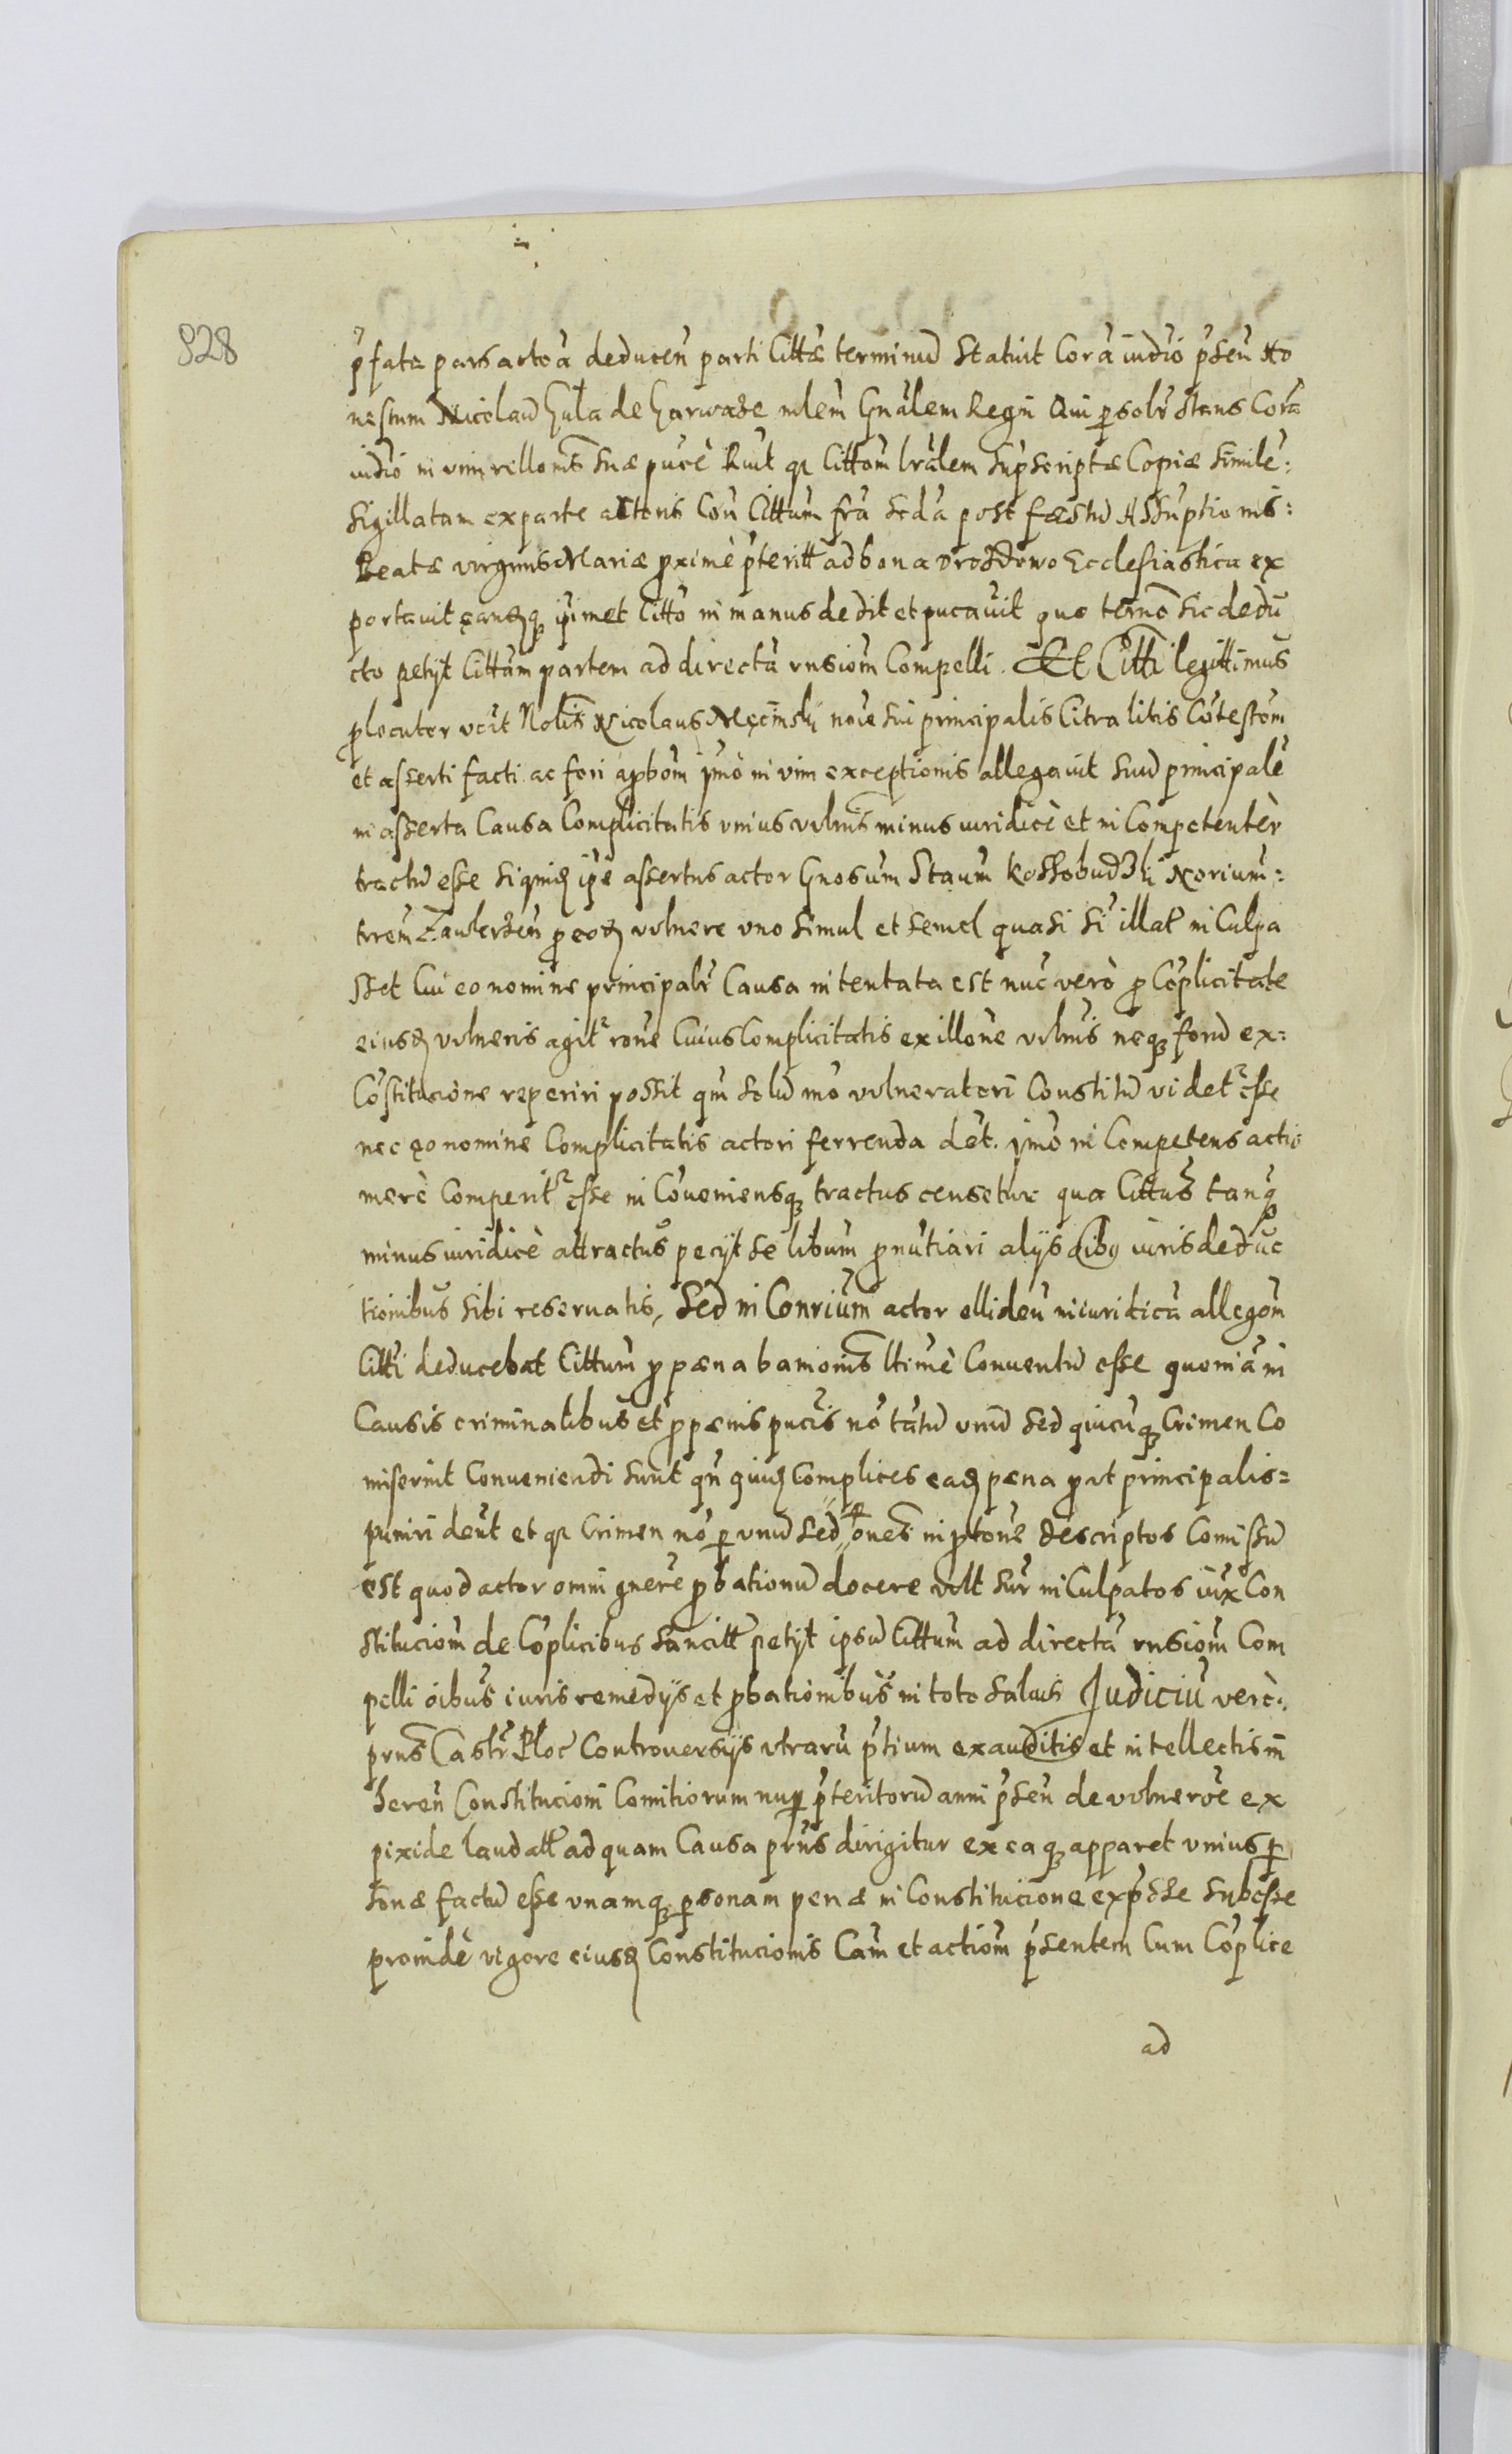 928
p̃fata pars actoã deduceñ parti Cittæ terminũ Statuit Corã iudio p̃señ Ho
nestum Nicolaũ Gula de Garwacze mlem̃ Gnãlem Regñ Qui psolr̃ Stans Corã
iudio in vim rellonis Suæ pucẽ Rcuit qz Cittom̃ lrãlem Supscriptæ Copiæ Simile:
Sigillatam ex parte actoris Con Cittum frã Scdã post fæstũ Assũptionis:
Beatæ virginis Mariæ proximè p̃teritt ad bona Drozdowo Ecclesiastica ex
portavit eandẽqz ip̃imet Citto in manus dedit et pucavit quo term̃o Sic dedũ
cto petÿt Cittam partem ad directã rnsiom̃ Compelli. Et Citti legittimus
plocutor vcit Nolis Nicolaus Męcinski noĩe Sui principalis Citra litis Cõtestom̃
et asserti facti ac fori apbom̃ ymo in vim exceptionis allegavit Suũ principalẽ
in asserta Causa Complicitatis unius vulnis minus iuridicè et in Competentèr
tractũ esse Siquidẽ ip̃e assertus actor Gnosum Staum Kossobudzki Norium:
trreñ Zawkrzeñ p eodẽ vulnere uno Simul et Semel quasi Si illat̃ in Culpa
sset Cui eo nomine principalr̃ Causa intentata est nũc verò p Cõplicitate
eiusdẽ vulneris agit᷑ rone Cuius Complicitatis ex illone vulnis neqz forũ ex:
Cõstitucione reperiri possit qm̃ Solũ mõ vulneratori Constitũ videt᷑ esse
nec eo nomine Complicitatis actori ferrenda det. ymo in Competens actio
merè Comperit᷑ esse in Cõveniensqz tractus censetur qua Cittus tanq̃
minus iuridicè attractus pecÿt Se libum pnũtiari alÿs oibus iuris deduc
tionibus Sibi reservatis, Sed in Conrium actor ellideñ iniuridicã allegom̃
Citti deducebat Cittum p pæna banionis ltimè Conventũ esse quoniã in
Causis criminalibus et p pænis pucis nõ tãtũ unũ Sed quicũqz Crimen Co
miserint Conveniendi Sunt qñ quidẽ Complices eadẽ pæna prout principalis=
puniri deñt et qz Crimen nõ p unũ Sed p oñes in ptone descriptos Comissũ
est quod actor omni gnere pbationũ docere vult Sur̃ in Culpatos iux̃ Con
stituciom̃ de Cõplicibus Sancitt petÿt ipsũ Cittum ad directã rnsiom̃ Com
pelli õibus iuris remedÿs et pbationibus in toto Salvis Judiciũ verè.
prns̃ Castr̃ Ploc̃ Controversÿs utrarũ p̃tium exauditis et intellectis in
hereñ Constitucioni Comitiorum nup p̃teritorũ anni p̃señ de vulnerẽ ex
pixide laudatt ad quam Causa prns̃ dirigitur ex eaqz apparet unius p
sonæ factũ esse unamqz psonam penæ in Constitucione exp̃sse Subesse
proindè vigore eiusdẽ Constitucionis Cam̃ et actiom̃ p̃sentem Cum Cõplice
ad